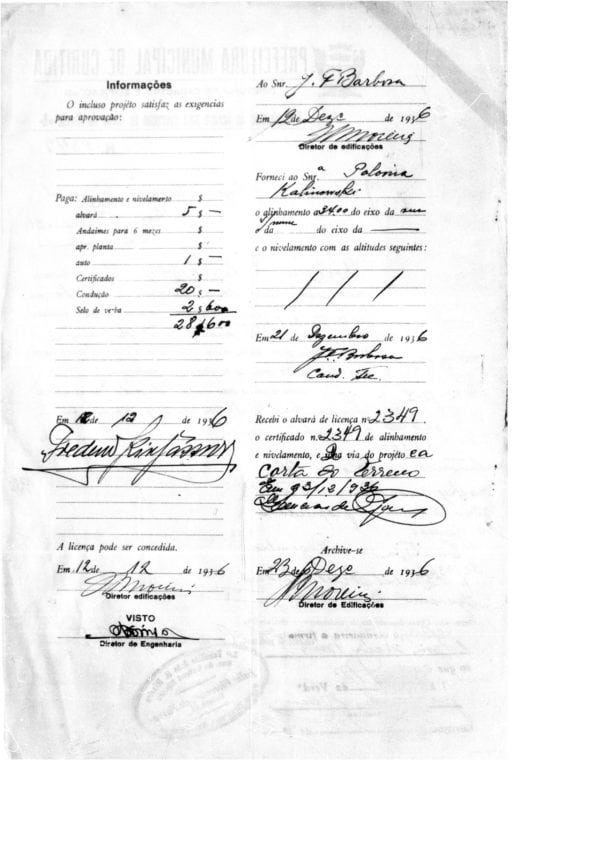 PREFEITURA MUNICIPAL DE CURITIBA
Informações
O incluso projéto satisfaz as exigencias
para aprovação:
Paga: Alinhamento e nivelamento $
alvará 5 $ —
Andaimes para 6 mezes $
apr. planta $
auto 1 $ —
Certificados $
Condução 20 $ —
Selo de verba 2 $ 600
28 $ 600
Em 12 de 12 de 1936
A licença pode ser concedida.
Em 12 de 12 de 1936
Diretor edificações
VISTO
Diretor de Engenharia
Ao Snr. J. F Barbosa
Em 12 de Deze de 1936
Diretor de edificações
Forneci ao Snr.a Polonia
Kalinowski
o alinhamento a 34.00 do eixo da rua
e da do eixo da
e o nivelamento com as altitudes seguintes:
/ / /
Em 21 de Dezembro de 1936
J F Barbosa
Cond. Tec.
Recebi o alvará de licença n. 2349,
o certificado n. 2349 de alinhamento
e nivelamento, e via do projéto e a
Carta do terreno
Em 23/12/936
Archive-se
Em 23 de Deze de 1936
Diretor de Edificações